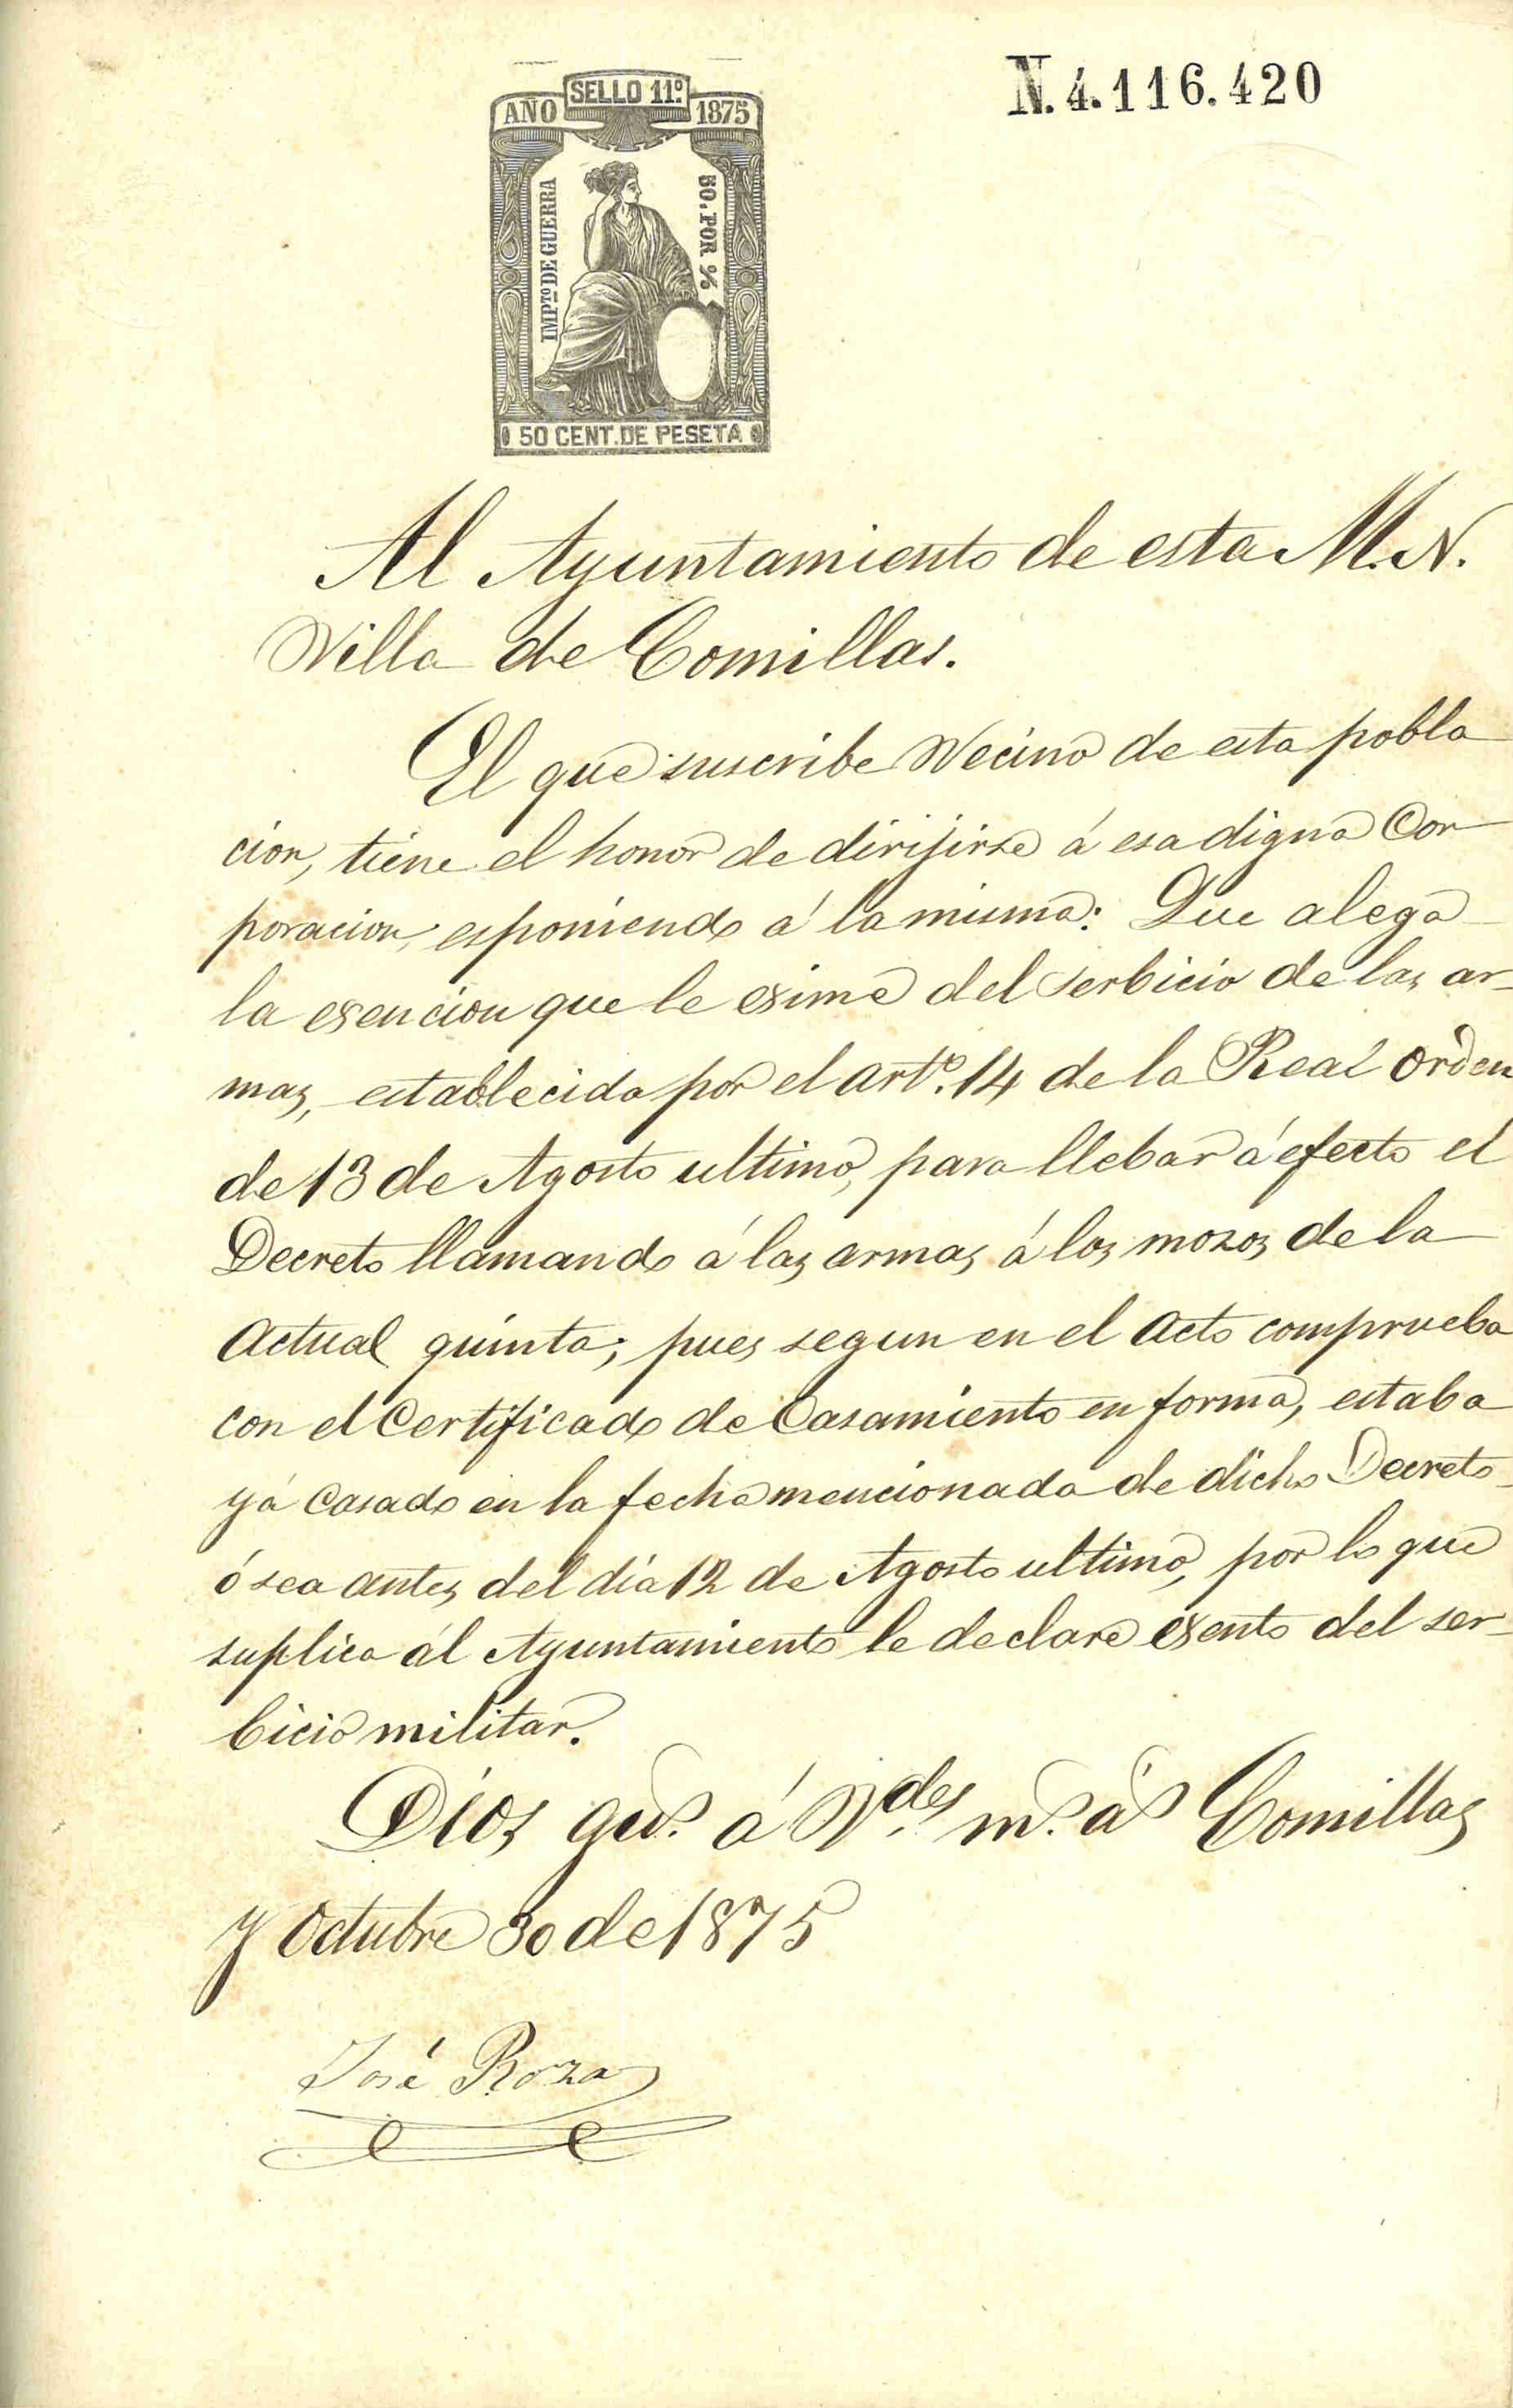 N. 4.116.420
SELLO 11º
AÑO 1875
IMPTO DE GUERRA
50. POR %
50 CENT. DE PESETA
Al Ayuntamiento de esta M. N.
Villa de Comillas.
El que suscribe Vecino de esta pobla
cion, tiene el honor de dirijirse á esa digna Cor
poracion, esponiendo á la misma: Que alega
la esencion que le exime del serbicio de las ar-
mas, establecida por el artº. 14 de la Real orden
de 13 de Agosto ultimo, para llebar á efecto el
Decreto llamando á las armas á los mozos de la
Actual quinta; pues segun en el Acto comprueba
con el Certificado de Casamiento en forma, estaba
yá Casado en la fecha mencionada de dicho Decreto
ó sea antes del dia 12 de Agosto ultimo, por lo que
suplica ál Ayuntamiento le declare exento del ser-
bicio militar.
Dios gue. á Vdes. ms. as Comillas
y Octubre 30 de 1875
José Roza